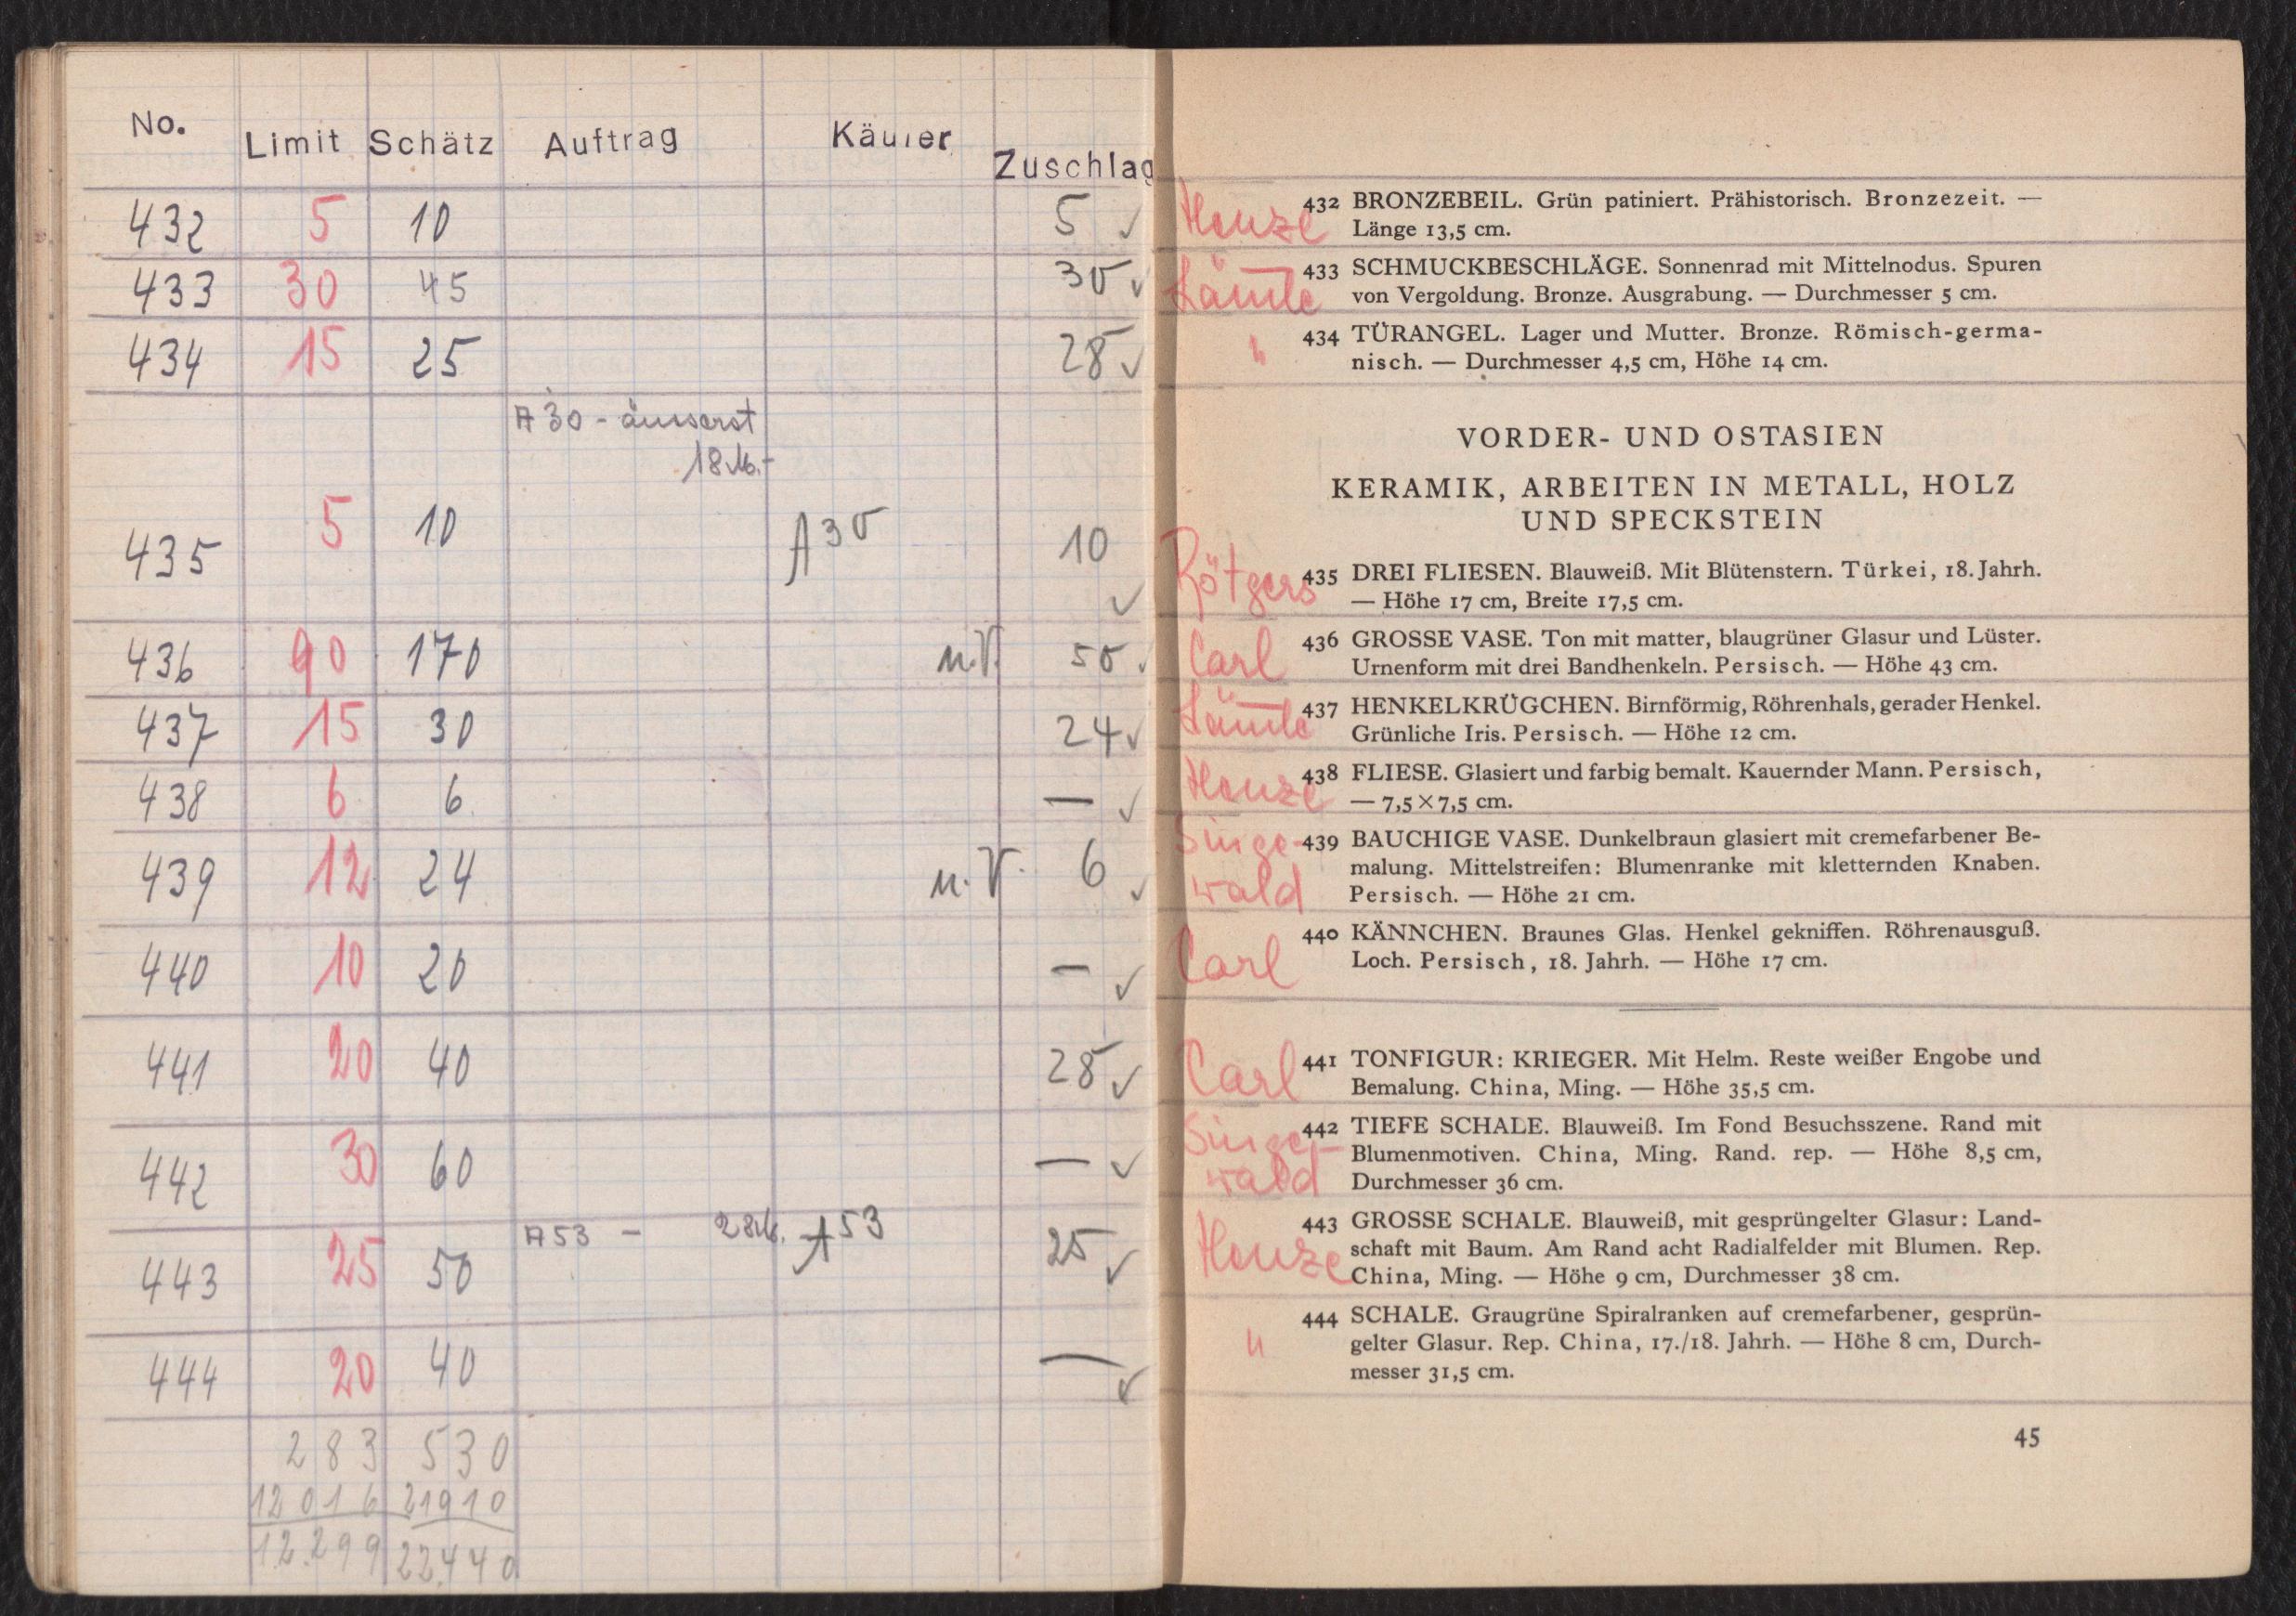 No. Limit Schätz Auftrag Käufer Zuschlag
432 5 10 5 ✓
433 30 45 30 ✓
434 15 25 28 ✓
A 30 - äusserst
18 M.-
435 5 10 A 30 10 ✓
436 90 170 u.V. 50 ✓
437 15 30 24 ✓
438 6 6 — ✓
439 12 24 u.V. 6 ✓
440 10 20 — ✓
441 20 40 28 ✓
442 30 60 — ✓
443 25 50 A 53 - 28 M. A 53 25 ✓
444 20 40 — ✓
283 530
12016 21910
12.299 22.440
Henze 432 BRONZEBEIL. Grün patiniert. Prähistorisch. Bronzezeit. —
Länge 13,5 cm.
433 SCHMUCKBESCHLÄGE. Sonnenrad mit Mittelnodus. Spuren
von Vergoldung. Bronze. Ausgrabung. — Durchmesser 5 cm.
" 434 TÜRANGEL. Lager und Mutter. Bronze. Römisch-germa-
nisch. — Durchmesser 4,5 cm, Höhe 14 cm.
VORDER- UND OSTASIEN
KERAMIK, ARBEITEN IN METALL, HOLZ
UND SPECKSTEIN
Rötgers 435 DREI FLIESEN. Blauweiß. Mit Blütenstern. Türkei, 18. Jahrh.
— Höhe 17 cm, Breite 17,5 cm.
Carl 436 GROSSE VASE. Ton mit matter, blaugrüner Glasur und Lüster.
Urnenform mit drei Bandhenkeln. Persisch. — Höhe 43 cm.
437 HENKELKRÜGCHEN. Birnförmig, Röhrenhals, gerader Henkel.
Grünliche Iris. Persisch. — Höhe 12 cm.
Henze 438 FLIESE. Glasiert und farbig bemalt. Kauernder Mann. Persisch,
— 7,5×7,5 cm.
Singe- 439 BAUCHIGE VASE. Dunkelbraun glasiert mit cremefarbener Be-
wald malung. Mittelstreifen: Blumenranke mit kletternden Knaben.
Persisch. — Höhe 21 cm.
Carl 440 KÄNNCHEN. Braunes Glas. Henkel gekniffen. Röhrenausguß.
Loch. Persisch, 18. Jahrh. — Höhe 17 cm.
Carl 441 TONFIGUR: KRIEGER. Mit Helm. Reste weißer Engobe und
Bemalung. China, Ming. — Höhe 35,5 cm.
Singe- 442 TIEFE SCHALE. Blauweiß. Im Fond Besuchsszene. Rand mit
wald Blumenmotiven. China, Ming. Rand. rep. — Höhe 8,5 cm,
Durchmesser 36 cm.
Henze 443 GROSSE SCHALE. Blauweiß, mit gesprüngelter Glasur: Land-
schaft mit Baum. Am Rand acht Radialfelder mit Blumen. Rep.
China, Ming. — Höhe 9 cm, Durchmesser 38 cm.
" 444 SCHALE. Graugrüne Spiralranken auf cremefarbener, gesprün-
gelter Glasur. Rep. China, 17./18. Jahrh. — Höhe 8 cm, Durch-
messer 31,5 cm.
45